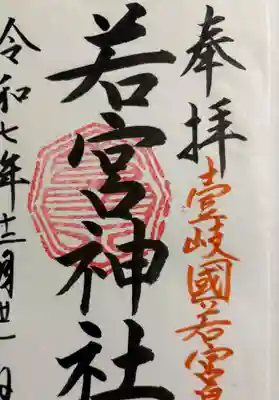 奉拝
壹岐國若宮
若宮神社
令和七年十二月廿一日